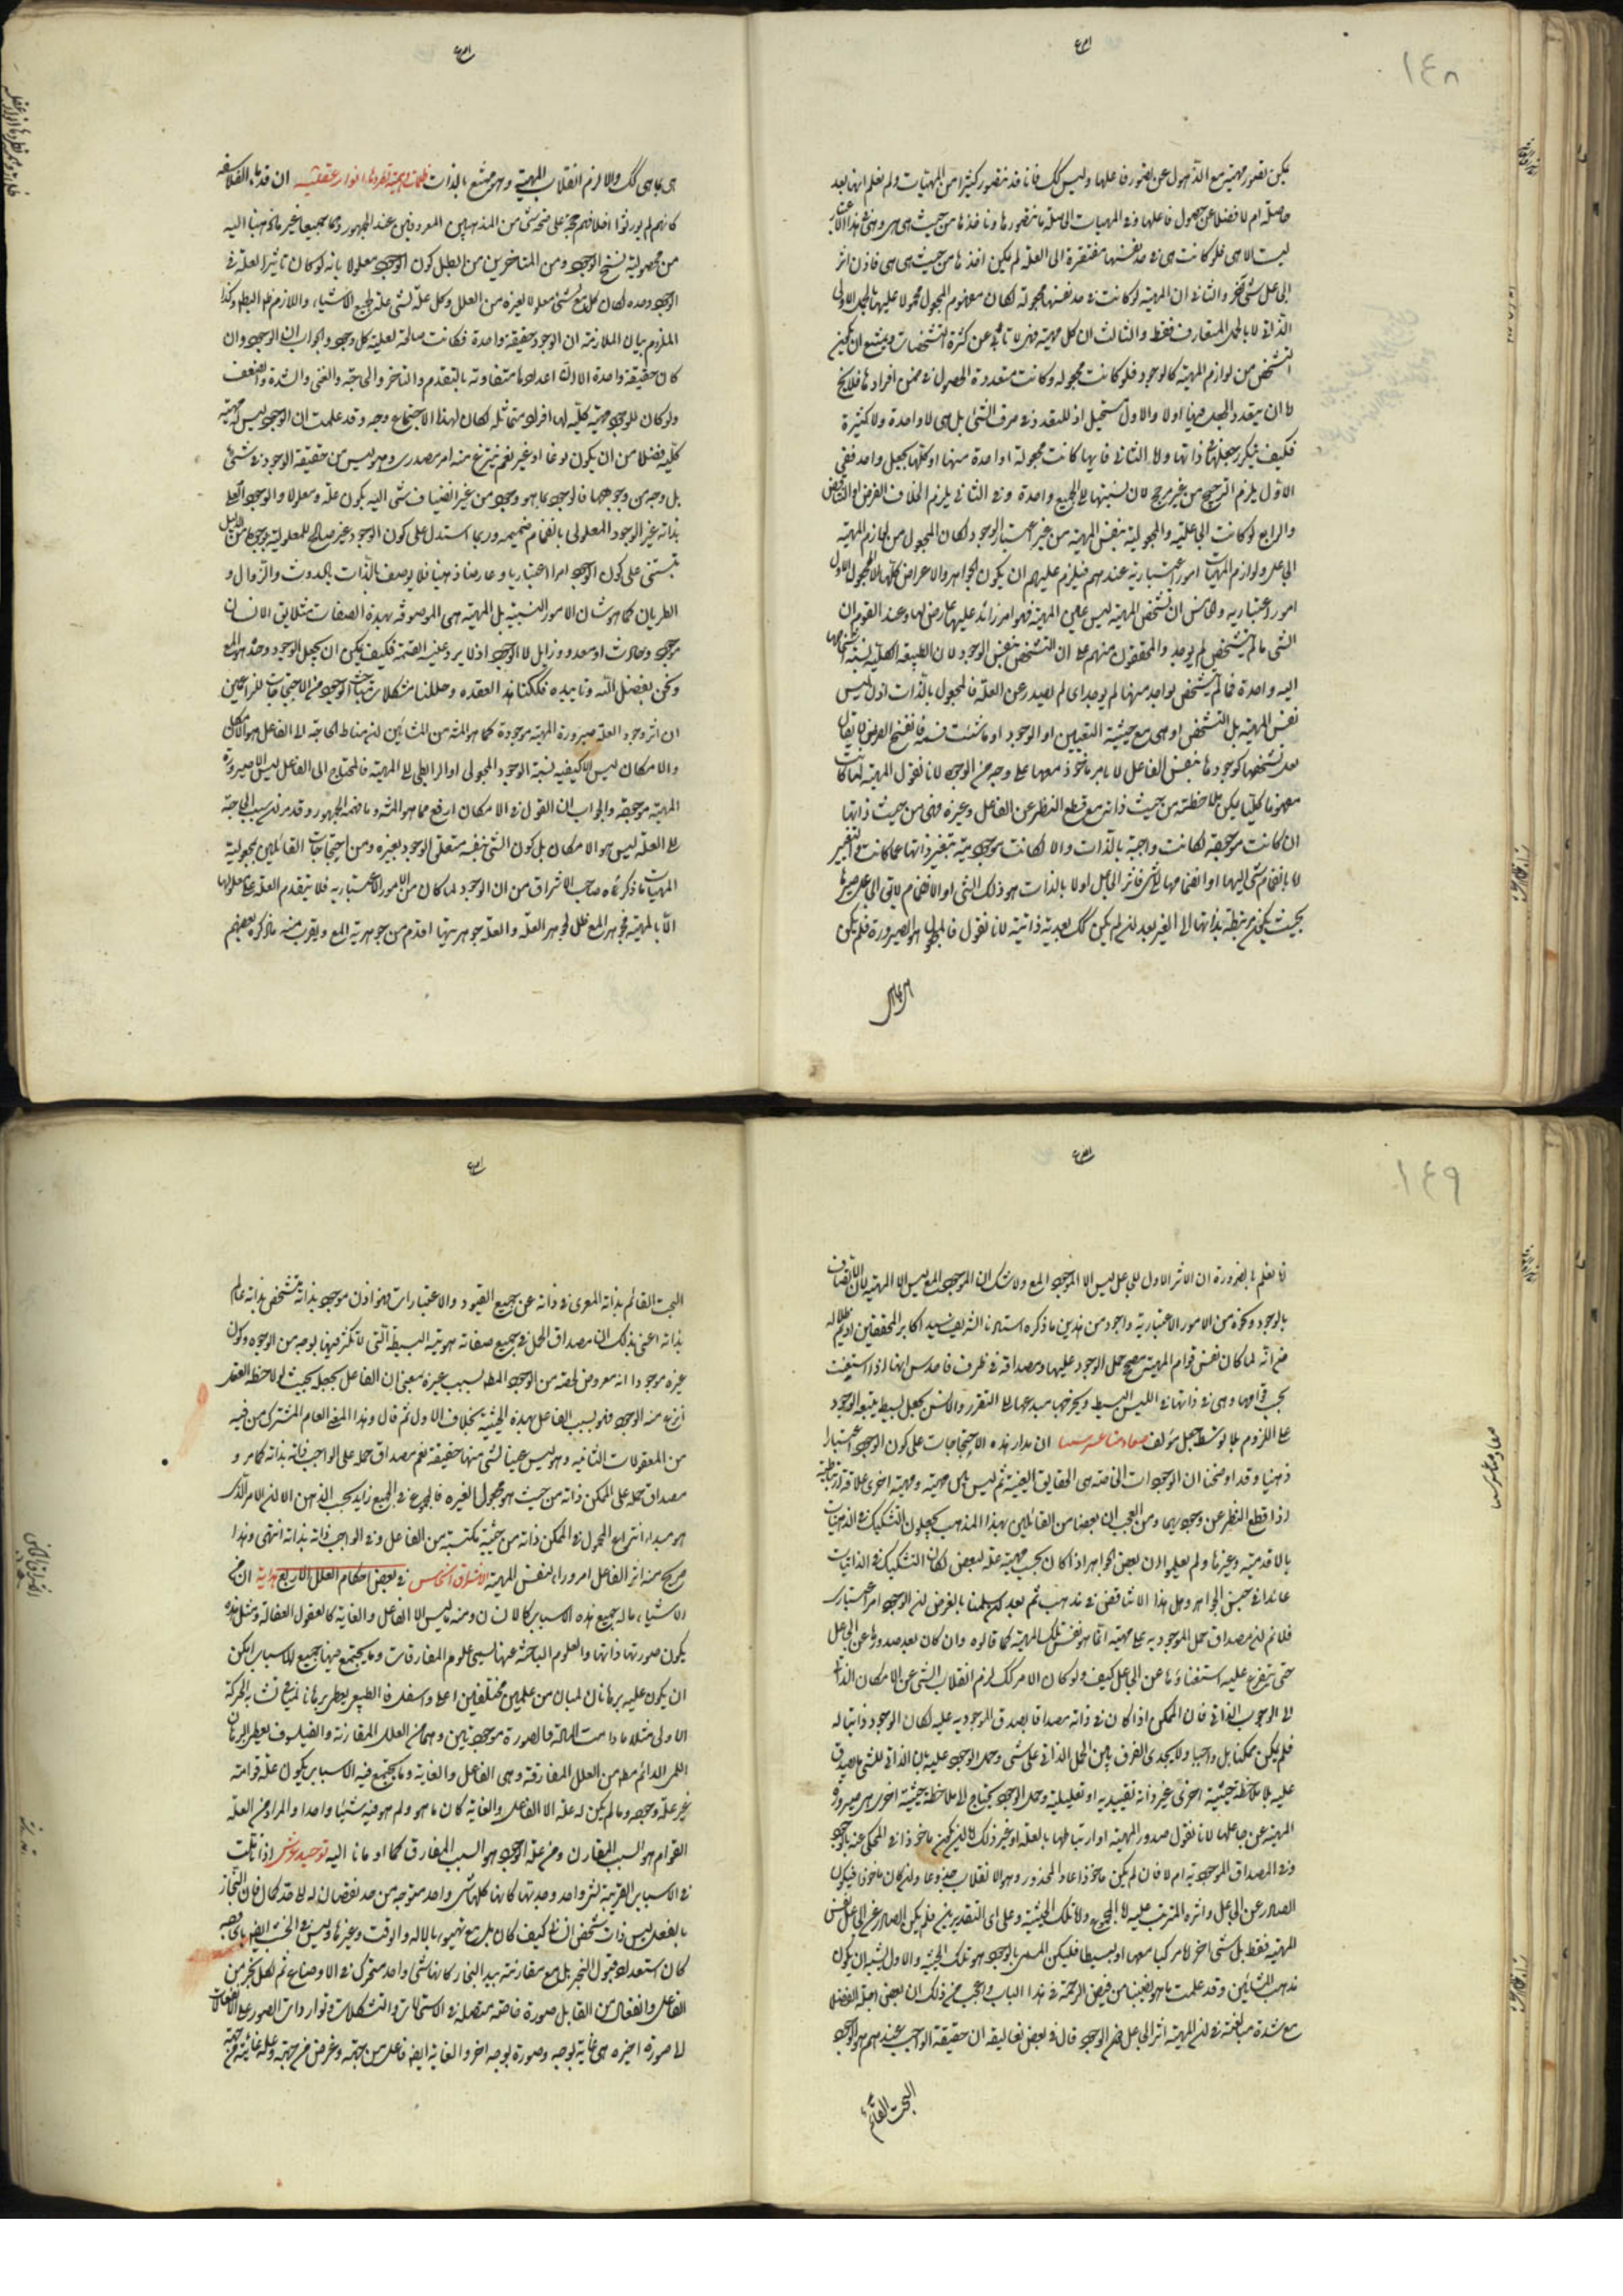 ١٤٨
يمكن تصور مهية مع الذهول عن تصور فاعلها وليس كك فانا قد نتصور كثيرا من المهيات ولم نعلم انها بعد
حاصلة ام لا فضلا عن حصول فاعلها ومن المهيات الحاصلة ما نتصورها وناخذها من حيث هى هى وهى بهذا الاعتبار
ليست الا هى فلو كانت هى فى حد نفسها مفتقرة الى العلة لم يكن اخذها من حيث هى هى فاذن اثر
الجاعل شئ اخر والثانى ان المهية لو كانت فى حد نفسها مجعولة لكان مفهوم المجعول محمولا عليها بالحمل الاولى
الذاتى لا بالحمل المتعارف فقط والثالث ان كل مهية فهى لا تابى عن كثرة التشخصات ويمتنع ان يكون
التشخص من لوازم المهية كالوجود فلو كانت مجعولة وكانت متعددة الحصول فى ضمن افرادها فلا يخ
اما ان يتعدد الجعل فيها اولا والاول مستحيل اذ لا تعدد فى صرف الشئ بل هى لا واحدة ولا كثيرة
فكيف يتكرر جعلها ذاتها وعلى الثانى فايها كانت مجعولة اواحدة منها او كلها بجعل واحد ففى
الاول يلزم الترجيح من غير مرجح لان نسبتها الى الجميع واحدة وفى الثانى يلزم الخلاف الفرض او التناقض
والرابع لو كانت الجاعلية والمجعولية بنفس المهية من غير اعتبار الوجود لكان المجعول من لوازم المهية
الجاعل ولوازم المهيات امور اعتبارية عندهم فيلزم عليهم ان يكون الجواهر والاعراض كلها الا المجعول الاول
امور اعتبارية والخامس ان تشخص المهية ليس عين المهية فهو امر زائد عليها عارض لها وعند القوم ان
الشئ ما لم يتشخص لم يوجد والمحققون منهم على ان التشخص بنفس الوجود لان الطبيعة الكلية نسبة اشخاصها
اليه واحدة فما لم يتشخص بواحد منها لم يوجد اى لم يصدر عن العلة فالمجعول بالذات اذن ليس
نفس المهية بل التشخص او هى مع حيثية التعين او الوجود او ما شئت فسمه فانفتح العرض لا يقال
بعد تشخصها كوجودها بنفس الفاعل لا بامر ماخوذ معها على وجه من الوجوه لانا نقول المهية لما كانت
مفهوما كليا يمكن ملاحظته من حيث ذاته مع قطع النظر عن الفاعل وغيره فهى من حيث ذاتها
ان كانت موجودة لكانت واجبة بالذات والا لكانت موجوديته بتغير ذاتها عما كانت والتغير
لا بانضمام شئ اليها او انضمامها لشئ فاثر الجاعل اولا بالذات هو ذلك الشئ او الانضمام لا يقال الجاعل صيرها
بحيث يكون مرتبطة بذاتها الى الغير بعد ان لم يكن كك بعدية ذاتية لانا نقول فالمجعول هو الصيرورة فلم يكن
هى ما هى كك والا لزم انقلاب المهية وهو ممتنع بالذات ظلمات وهمية تطردها انوار عقلية ان قدماء الفلاسفة
كانهم لم يورثوا اخلافهم حجة على صحة شئ من المذهبين المعروفين عند الجمهور وهما جميعا غير ما ذهبنا اليه
من مجعولية نسخ الوجود ومن المتاخرين من ابطل كون الوجود معلولا بانه لو كان تاثير العلة فى
الوجود وحده لكان كل شئ معلولا لغيره من العلل وكل علة لشئ علة لجميع الاشياء واللازم ظاهر البطلان وكذا
الملزوم بيان الملازمة ان الوجود حقيقة واحدة فكانت صالحة لعلية كل وجود والجواب ان الوجود وان
كان حقيقة واحدة الا ان اعدادها متفاوتة بالتقدم والتاخر والحاجة والغنى والشدة والضعف
ولو كان للوجود مهية كلية لها افراد متماثلة لكان لهذا الاحتجاج وجه وقد علمت ان الوجود ليس له مهية
كلية فضلا من ان يكون نوعا او غيره نعم ينتزع منه امر مصدرى وهو ليس من حقيقة الوجود فى شئ
بل وجه من وجوهها فالوجود بما هو وجود من غير انضياف شئ اليه يكون علة ومعلولا والوجود العلى
بذاته غير الوجود المعلولى بانضمام ضميمة وربما استدل على كون الوجود غير صالح للمعلولية بوجه اخر من الدليل
تبتنى على كون الوجود امرا اعتباريا وعارضا ذهنيا فلا يوصف بالذات بالحدوث والزوال و
الطريان كما هو شان الامور النسبية بل المهية هى الموصوفة بهذه الصفات مثلا يقال الانسان
موجود وحادث او معدوم وزايل لا الوجود اذ لا يرد عليه القسمة فكيف يمكن ان يجعل الوجود وحده هو المعلول
ونحن بفضل الله وتاييده فككنا هذه العقدة وحللنا مشكلات مباحث الوجود ومن الاحتجاجات للزاعمين
ان اثر وجود العلة صيرورة المهية موجودة كما هو المشهور من المشائين ان مناط الحاجة الى الفاعل هو الامكان
والامكان ليس الا كيفية نسبة الوجود المحمولى او الرابطى الى المهية فالمحتاج الى الفاعل ليس الا صيرورة
المهية موجودة والجواب ان القول فى الامكان ارفع مما هو المشهور وما فهمه الجمهور وقد مر ان سبب الحاجة
الى العلة ليس هو الامكان بل كون الشئ نفسه متعلق الوجود بغيره ومن احتجاجات القائلين بمجعولية
المهيات ما ذكره صاحب الاشراق من ان الوجود لما كان من الامور الاعتبارية فلا يتقدم العلة على معلولها
الا بالمهية فجوهر المعلول ظل لجوهر العلة والعلة جوهريتها اقدم من جوهرية المعلول ويقرب منه ما ذكره بعضهم
١٤٩
انا نعلم بالضرورة ان الاثر الاول للجاعل ليس الا الموجود المعلول ولا شك ان الموجود المعلول ليس الا المهية لان الاتصاف
بالوجود ونحوه من الامور الاعتبارية واجود من هذين ما ذكره استادنا الشريف سيد اكابر المحققين اديم ظلاله
من انه لما كان نفس قوام المهية مصحح حمل الوجود عليها ومصداقه فى ظرف ما فاحدس انها اذا استغنت
بحسب قوامها وهى فى ذاتها فى الليس البسيط ويخرجها مبدعها الى التقرر والايس بجعل بسيط يتبعه الوجود
على اللزوم بلا توسط جعل مؤلف مصادمة عرشية ان مدار هذه الاحتجاجات على كون الوجود اعتبارا
ذهنيا وقد اوضحنا ان الوجودات الخاصة هى الحقايق العينية ثم ليس بين مهية ومهية اخرى علاقة ارتباطية
اذا قطع النظر عن وجوديهما ومن العجب ان بعضا من القائلين بهذا المذهب يحيلون التشكيك فى الذاتيات
بالاقدمية وغيرها ولم يعلموا ان بعض الجواهر اذا كان بحسب مهيته علة لبعض لكان التشكيك فى الذاتيات
عائدا فى جنس الجواهر وهل هذا الا تناقض فى مذهب ثم بعد ان سلمنا بالفرض ان الوجود امر اعتبارى
فلا نم ان مصداق حمل الموجودية على مهية انما هو نفس تلك المهية كما قالوه وان كان بعد صدورها عن الجاعل
حتى يتفرع عليه استغناؤها عن الجاعل كيف ولو كان الامر كك لزم انقلاب الشئ عن الامكان الذاتى
الى الوجوب الذاتى فان الممكن اذا كان فى ذاته مصداقا لصدق الموجودية عليه لكان الوجود ذاتيا له
فلم يكن ممكنا بل واجبا ولا يجدى الفرق بين الحمل الذاتى على شئ وحمل الوجود عليه بان الذاتى للشئ ما يصدق
عليه بلا ملاحظة حيثية اخرى غير ذاته تقييدية او تعليلية وحمل الوجود يحتاج الى ملاحظة حيثية اخرى هى صدور
المهية عن جاعلها لانا نقول صدور المهية او ارتباطها بالعلة او غير ذلك اما ان يكون ماخوذا فى المحكى عنه بالوجود
وفى المصداق للموجودية ام لا فان لم يكن ماخوذا عاد المحذور وهو الانقلاب جذعا وان كان ماخوذا فيكون
الصادر عن الجاعل واثره المترتب عليه اما المجموع واما تلك الحيثية وعلى اى التقديرين فلم يكن الصادر عن الجاعل نفس
المهية فقط بل شئ اخر اما مركبا معها او بسيطا فليكن المسمى بالوجود هو تلك الحيثية والاول يشبه ان يكون
مذهب المشائين وقد علمت ما هو نصيبنا من فيض الرحمة فى هذا الباب واعجب من ذلك ان بعض اجلة الفضلاء
مع شدة مبالغته فى ان المهية اثر الجاعل دون الوجود قال فى بعض تعاليقه ان حقيقة الواجب عندهم هو الوجود
البحت القائم
مصادمة عرشية
البحت القائم بذاته المعرى فى ذاته عن جميع القيود والاعتبارات فهو اذن موجود بذاته متشخص بذاته عالم
بذاته اعنى بذلك ان مصداق الحمل فى جميع صفاته هويته البسيطة التى لا تكثر فيها بوجه من الوجوه وكون
غيره موجودا انه معروض لحصة من الوجود المطلق بسبب غيره بمعنى ان الفاعل يجعله بحيث لو لاحظه العقل
انتزع منه الوجود فهو بسبب الفاعل بهذه الحيثية بخلاف الاول ثم قال وهذا المعنى العام المشترك من فيه
من المعقولات الثانية وهو ليس عينا لشئ منها حقيقة نعم مصداق حمله على الواجب ذاته بذاته كما مر و
مصداق حمله على الممكن ذاته من حيث هو مجعول الغير فالمحمول فى الجميع زايد بحسب الذهن الا ان الامر الذى
هو مبدء انتزاع المحمول فى الممكن ذاته من حيثية مكتسبة من الفاعل وفى الواجب ذاته بذاته انتهى وهذا
صريح منه اثر الفاعل امر وراء نفس المهية الاشراق الخامس فى بعض احكام العلل الاربع هداية ان من
الاشياء ما له جميع هذه الاسباب كالانسان ومنه ما ليس الا الفاعل والغاية كالعقول الفعالة ومثل هذه
يكون صورتها ذاتها والعلوم الباحثة عنها يسمى علوم المفارقات وما يجتمع فيها جميع الاسباب امكن
ان يكون عليه برهانان لميان من علمين مختلفين اعلى واسفل فالطبيعى يعطى برهانا لميا فى تشابه الحركة
الاولى مثلا ما دامت المادة والصورة موجودتين وهما من العلل المقارنة والفيلسوف يعطى البرهان
اللمى الدائم مطلقا من العلل المفارقة وهى الفاعل والغاية وما يجتمع فيه الاسباب يكون علة قوامه
غير علة وجوده وما لم يكن له علة الا الفاعل والغاية كان ما هو ولم هو فيه شيئا واحدا والمراد من العلة
القوام هو السبب المقارن ومن علة الوجود هو السبب المفارق كما اومانا اليه توحيد عرشى اذا تاملت
فى الاسباب القريبة لشئ واحد وجدتها كانها كلها شئ واحد متوجه من حد نقصان له الى حد كمال فان النجار
بالفعل ليس ذات شخص انسان كيف كان بل مع تهيؤه بالالة والوقت وغيرها وليس فى الخشب ايضا ما فيه
كان استعداد قبول النجر بل مع مقارنته بيد النجار كانها شئ واحد متحرك فى الاوضاع ثم لكل نجر من
الفاعل وانفعال من القابل صورة خاصة متصلة فى الاستحالات والتشكلات وتوارد الصور على الانفعالات
الى صورة اخيرة هى غاية بوجه وصورة بوجه اخر والغاية ايضا فاعل من جهة وغرض من جهة وعلة غائية من جهة